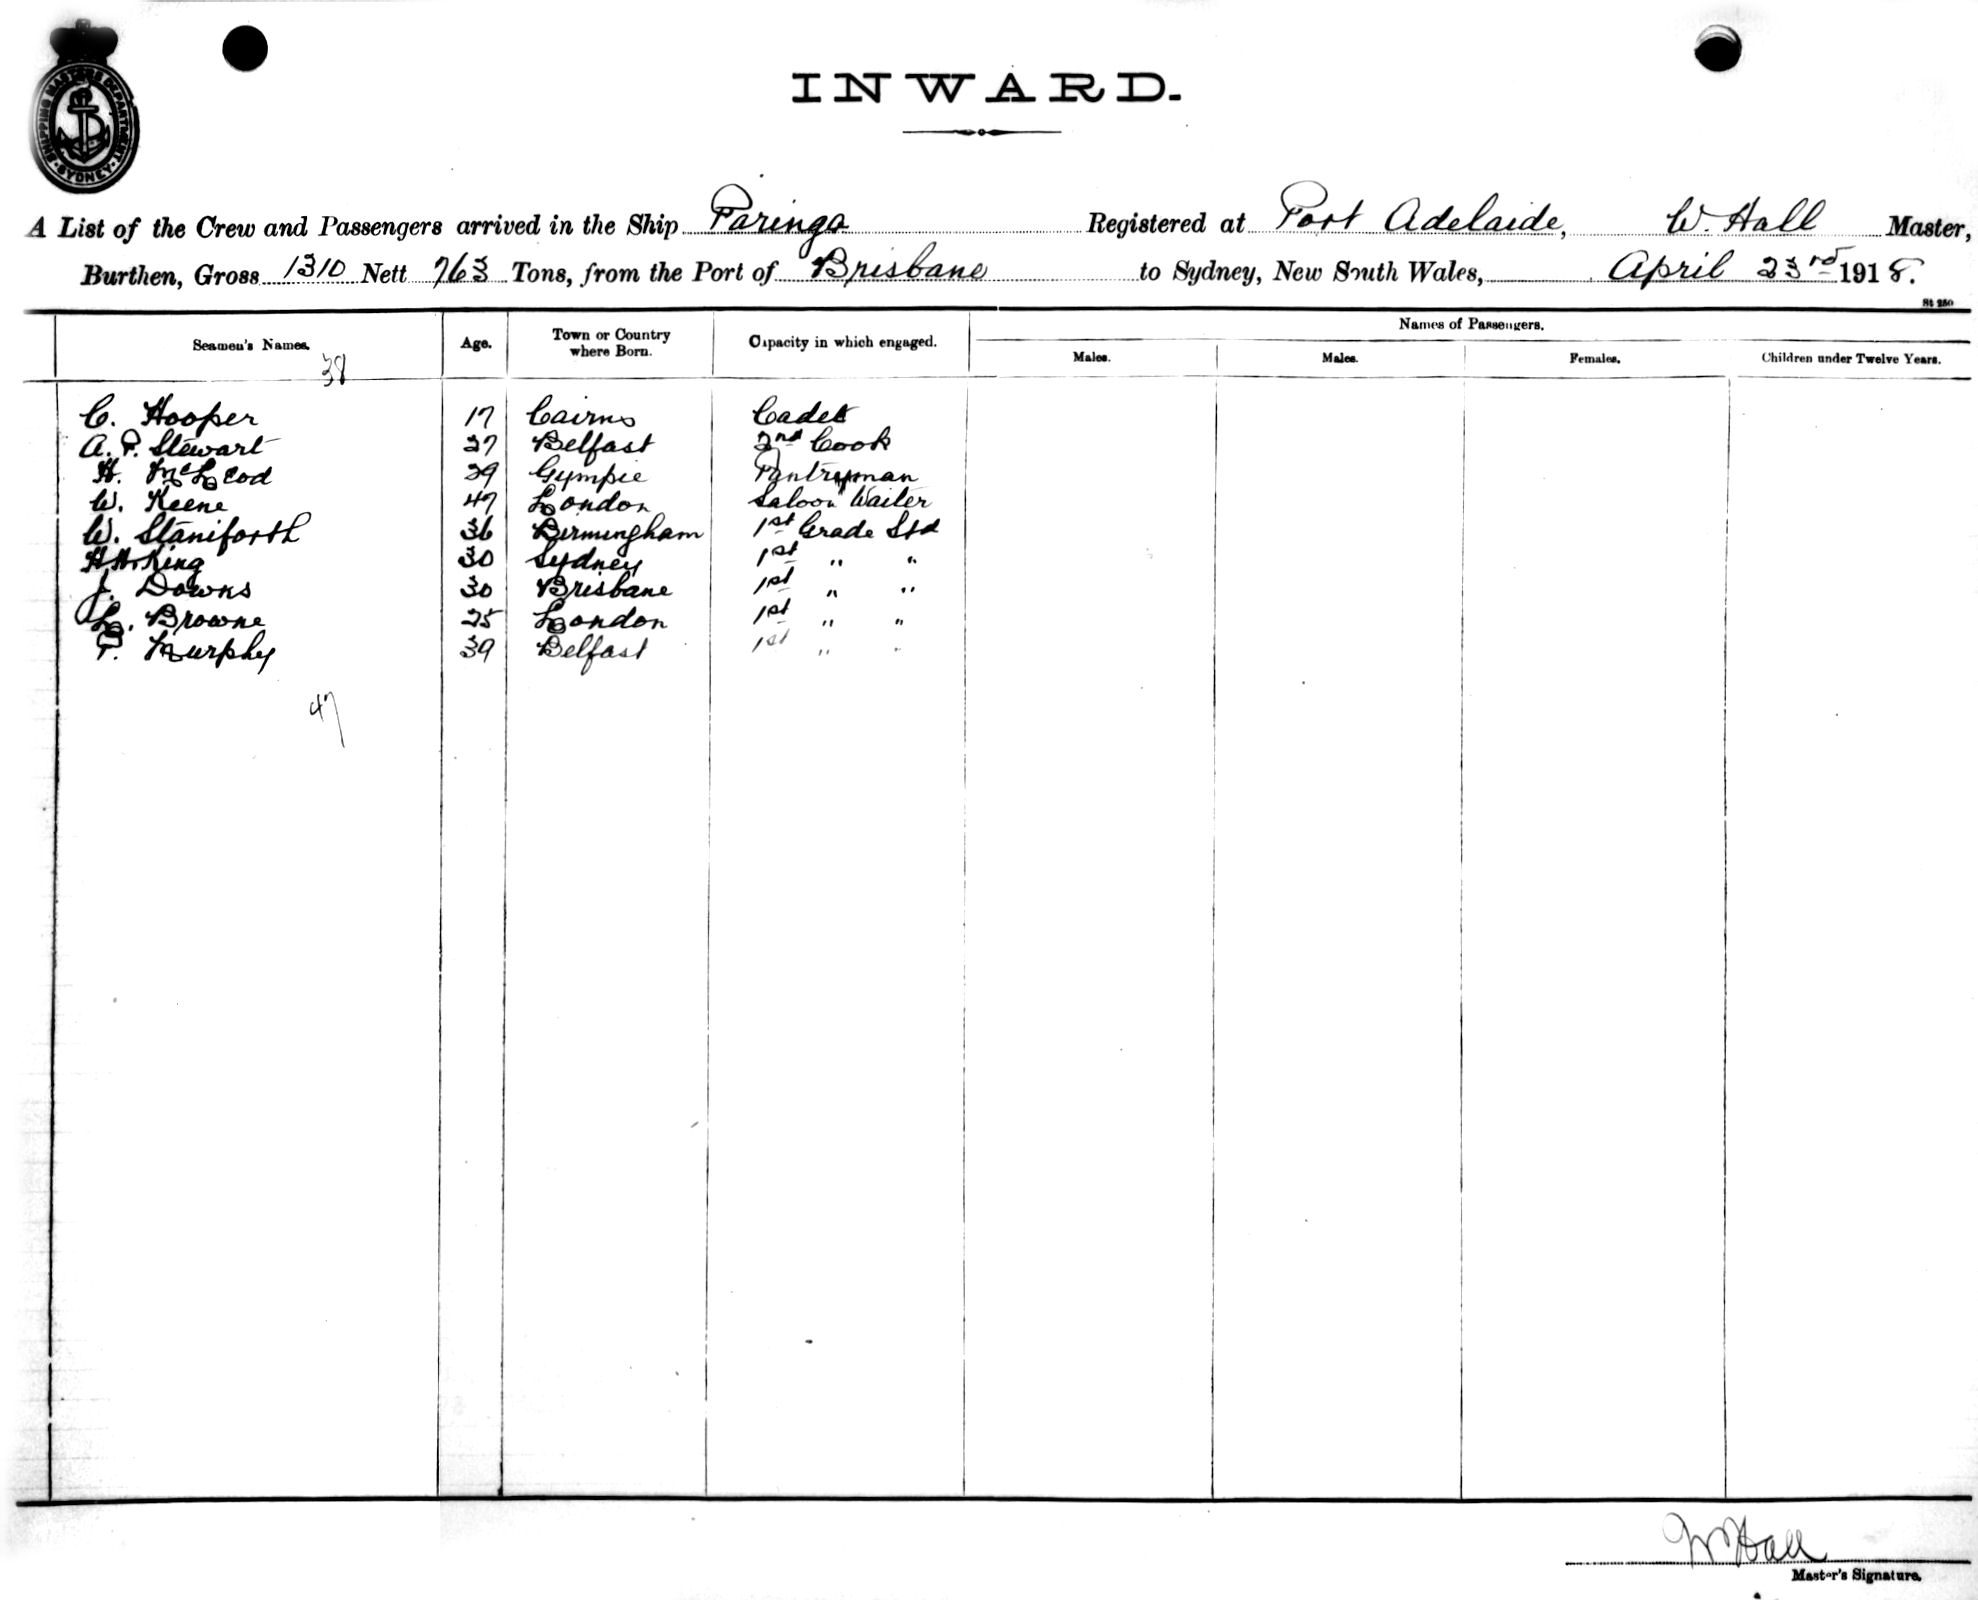 SHIPPING MASTERS DEPARTMENT SYDNEY
INWARD.
A List of the Crew and Passengers arrived in the Ship Paringa Registered at Port Adelaide, W. Hall Master,
Burthen, Gross 1310 Nett 763 Tons, from the Port of Brisbane to Sydney, New South Wales, April 23rd 1918.
St 250
Seamen's Names. Age. Town or Country where Born. Capacity in which engaged. Names of Passengers.
Males. Males. Females. Children under Twelve Years.
38
C. Hooper 17 Cairns Cadet
A. P. Stewart 27 Belfast 2nd Cook
H. McLeod 29 Gympie Pantryman
W. Keene 47 London Saloon Waiter
W. Staniforth 36 Birmingham 1st Grade Std
H. H. King 30 Sydney 1st " "
J. Downs 30 Brisbane 1st " "
L. Browne 25 London 1st " "
P. Murphy 39 Belfast 1st " "
47
W Hall
Master's Signature.